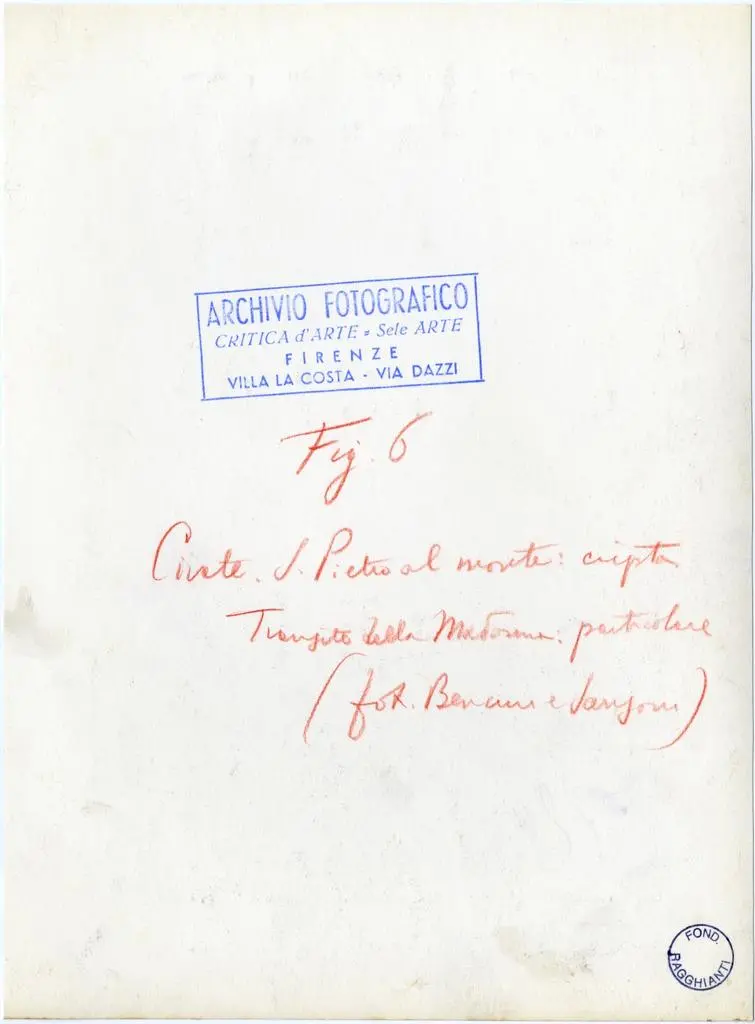 ARCHIVIO FOTOGRAFICO
CRITICA d'ARTE = Sele ARTE
FIRENZE
VILLA LA COSTA - VIA DAZZI
Fig. 6
Civate. S. Pietro al monte: cripta
Transito della Madonna: particolare
(fot. Bencini e Sansoni)
FOND. RAGGHIANTI